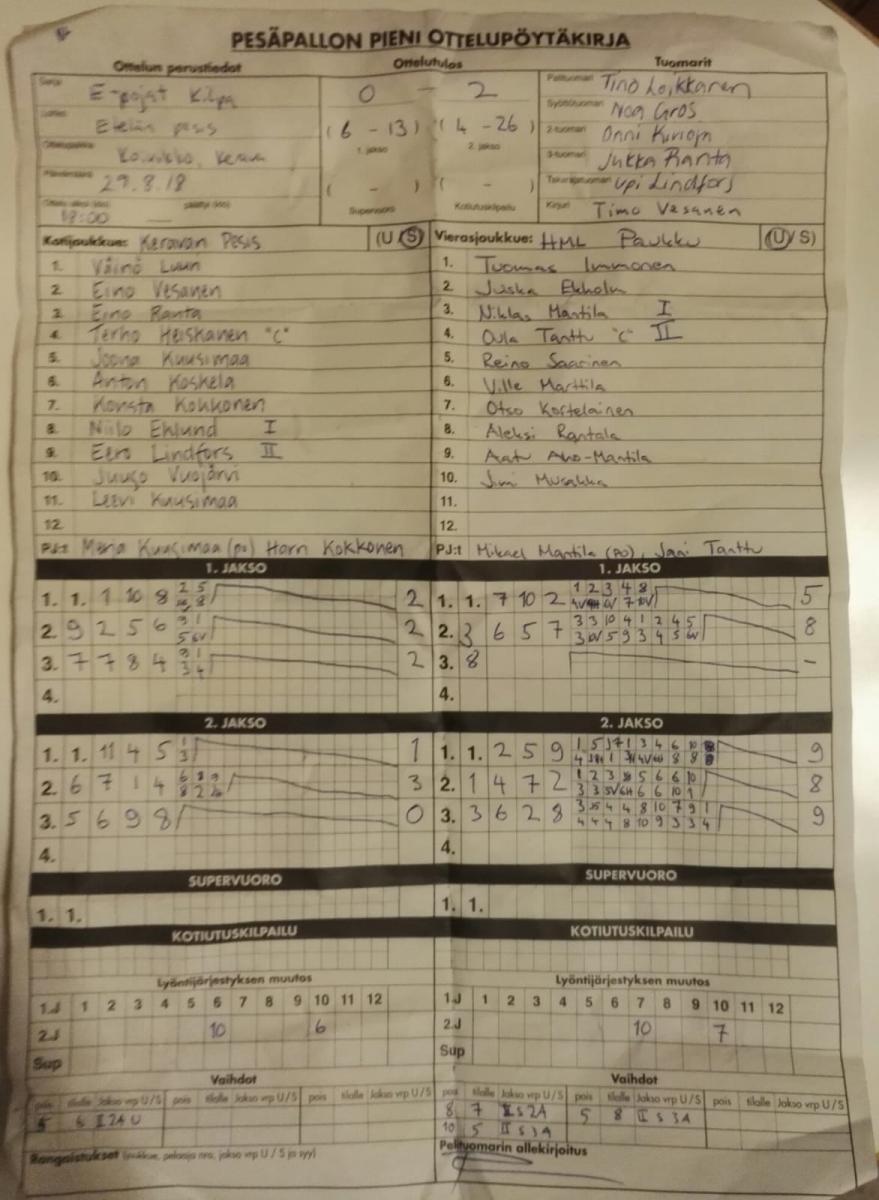 PESÄPALLON PIENI OTTELUPÖYTÄKIRJA
Ottelun perustiedot
Ottelutulos
Tuomarit
Sarja E-pojat Kilpa
Etelän pesis
Kerava
29.8.18
18:00
0 - 2
(6 - 13) (4 - 26)
1. jakso 2. jakso
( - ) ( - )
Supervuoro Kotiutuskilpailu
Pelituomari Tino Loikkanen
Syöttötuomari Noa Gros
2-tuomari Onni
3-tuomari Jukka Ranta
Takarajatuomari Upi Lindfors
Kirjuri Timo Vesanen
Kotijoukkue: Keravan Pesis (U/S)
1. Väinö Luun
2. Eino Vesanen
3. Eino Ranta
4. Terho Heiskanen "C"
5. Joona Kuusimaa
6. Anton Koskela
7. Konsta Kokkonen
8. Niilo Ehlund I
9. Eero Lindfors II
10. Juuso Vuojärvi
11. Leevi Kuusimaa
12.
PJ:t Meria Kuusimaa (po) Harri Kokkonen
Vierasjoukkue: HML Paukku (U/S)
1. Tuomas Immonen
2. Juska Ekholm
3. Niklas Mantila I
4. Oula Tanttu "C" II
5. Reino Saarinen
6. Ville Marttila
7. Otso Kortelainen
8. Aleksi Rantala
9. Aatu Aho-Mantila
10. Jimi Musakka
11.
12.
PJ:t Mikael Mantila (PO), Jani Tanttu
1. JAKSO
1. 1. 1 10 8 2
2. 9 2 5 6 2
3. 7 7 8 4 2
4.
1. JAKSO
1. 1. 7 10 2 1 2 3 4 8 5
2. 3 6 5 7 3 3 10 4 1 2 4 5 8
3. 8 -
4.
2. JAKSO
1. 1. 11 4 5 1
2. 6 7 1 4 3
3. 5 6 9 8 0
4.
2. JAKSO
1. 1. 2 5 9 9
2. 1 4 7 2 8
3. 3 6 2 8 9
4.
SUPERVUORO
1. 1.
SUPERVUORO
1. 1.
KOTIUTUSKILPAILU
KOTIUTUSKILPAILU
Lyöntijärjestyksen muutos
1.J 1 2 3 4 5 6 7 8 9 10 11 12
2.J 10 6
Sup
Lyöntijärjestyksen muutos
1.J 1 2 3 4 5 6 7 8 9 10 11 12
2.J 10 7
Sup
Vaihdot
pois tilalle Jakso vrp U/S pois tilalle Jakso vrp U/S pois tilalle Jakso vrp U/S
5 6 II 2A U
Vaihdot
pois tilalle Jakso vrp U/S pois tilalle Jakso vrp U/S pois tilalle Jakso vrp U/S
8 7 II S 2A 5 8 II S 3A
10 5 II S 3A
Rangaistukset (joukkue, pelaaja nro, jakso vrp U / S ja syy)
Pelituomarin allekirjoitus